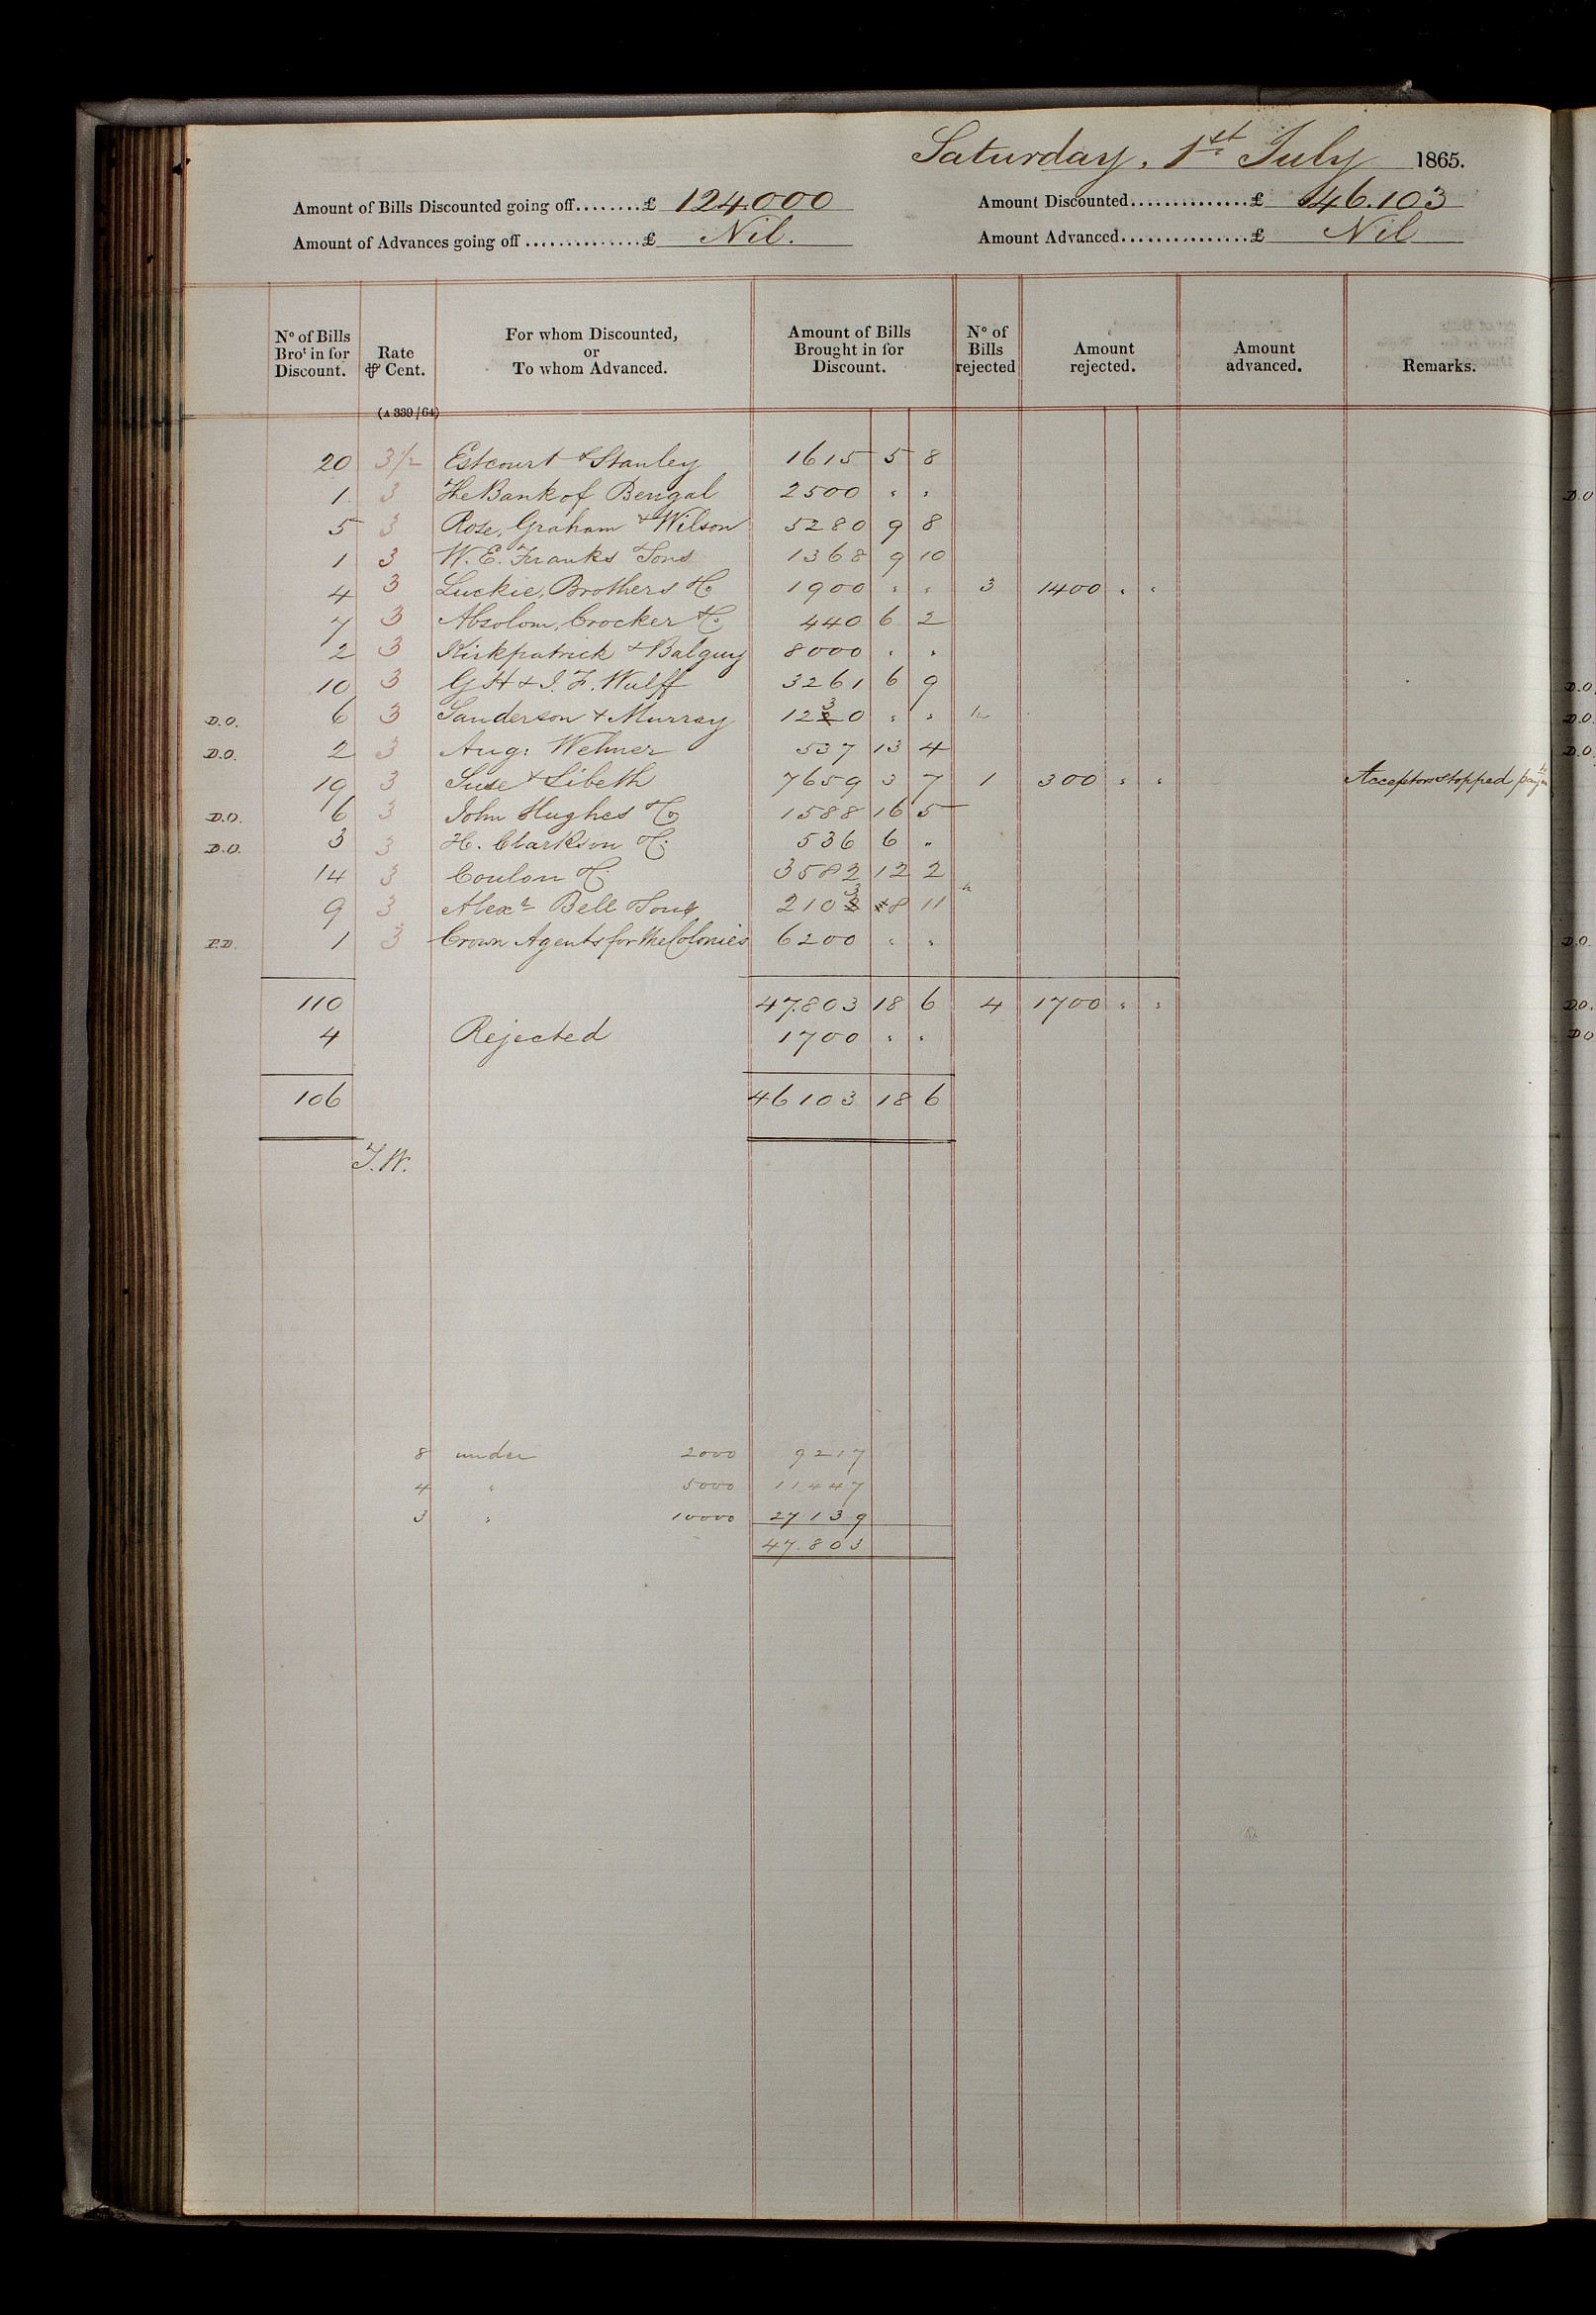 Saturday, 1st July 1865.
Amount of Bills Discounted going off........£ 124.000 Amount Discounted..............£ 46.103
Amount of Advances going off..............£ Nil. Amount Advanced................£ Nil
No of Bills Brot in for Discount. Rate ⅌ Cent. For whom Discounted, or To whom Advanced. Amount of Bills Brought in for Discount. No of Bills rejected Amount rejected. Amount advanced. Remarks.
(A 339/64)
20 3½ Estcourt & Stanley 1615 5 8
1 3 The Bank of Bengal 2500 " "
5 3 Rose, Graham & Wilson 5280 9 8
1 3 W. E. Franks Sons 1368 9 10
4 3 Luckie, Brothers & Co 1900 " " 3 1400 " "
7 3 Absolom, Crocker & Co 440 6 2
2 3 Kirkpatrick & Balguy 8000 " "
10 3 G H & I. F. Wulff 3261 6 9
D.O. 6 3 Sanderson & Murray 1230 " "
D.O. 2 3 Aug: Wehner 537 13 4
19 3 Suse & Sibeth 7659 3 7 1 300 " " Acceptors stopped paymt
D.O. 6 3 John Hughes & Co 1588 16 5
D.O. 3 3 H. Clarkson & Co 536 6 "
14 3 Coulon & Co 3582 12 2
9 3 Alexr Bell & Sons 2103 8 11
P.D. 1 3 Crown Agents for the Colonies 6200 " "
110 47.803 18 6 4 1700 " "
4 Rejected 1700 " "
106 46103 18 6
T.W.
8 under 2000 9217
4 " 5000 11447
3 " 10000 27139
47.803
D.O.
D.O.
D.O.
D.O.
D.O.
D.O.
D.O.